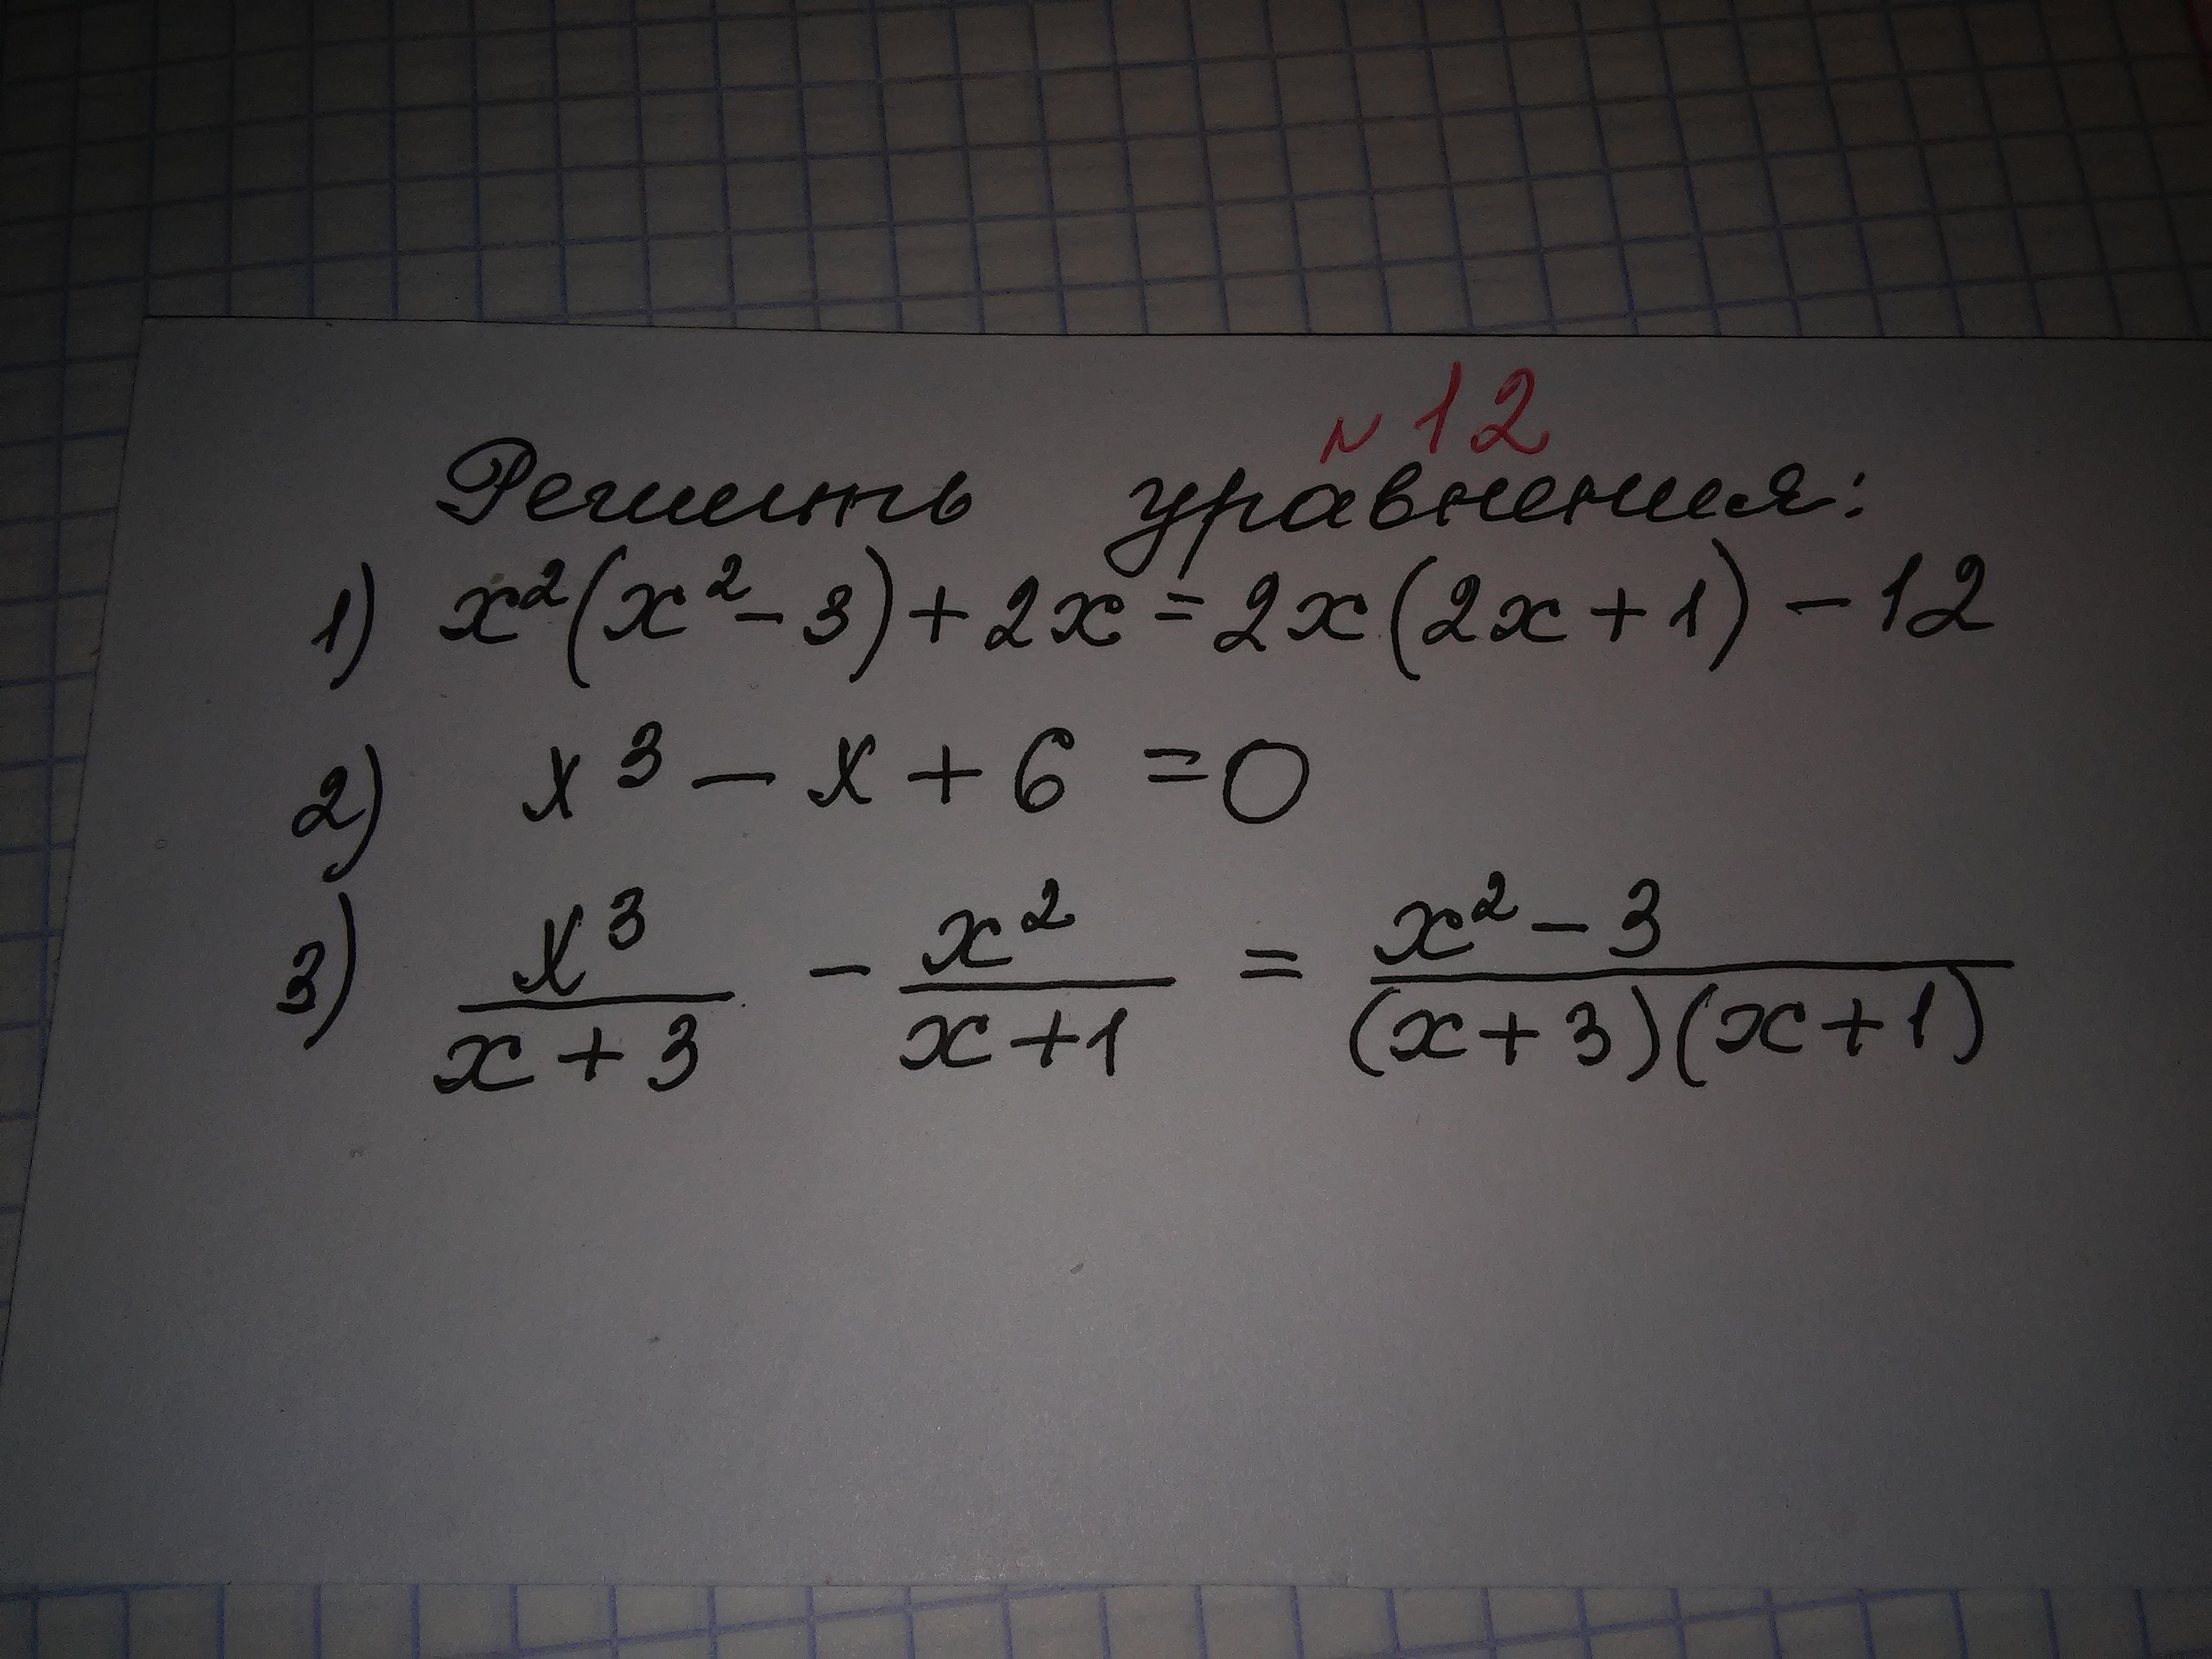 №12
Решить уравнения:
1) x²(x²-3)+2x=2x(2x+1)-12
2) x³-x+6=0
3) x³/(x+3) - x²/(x+1) = (x²-3)/((x+3)(x+1))